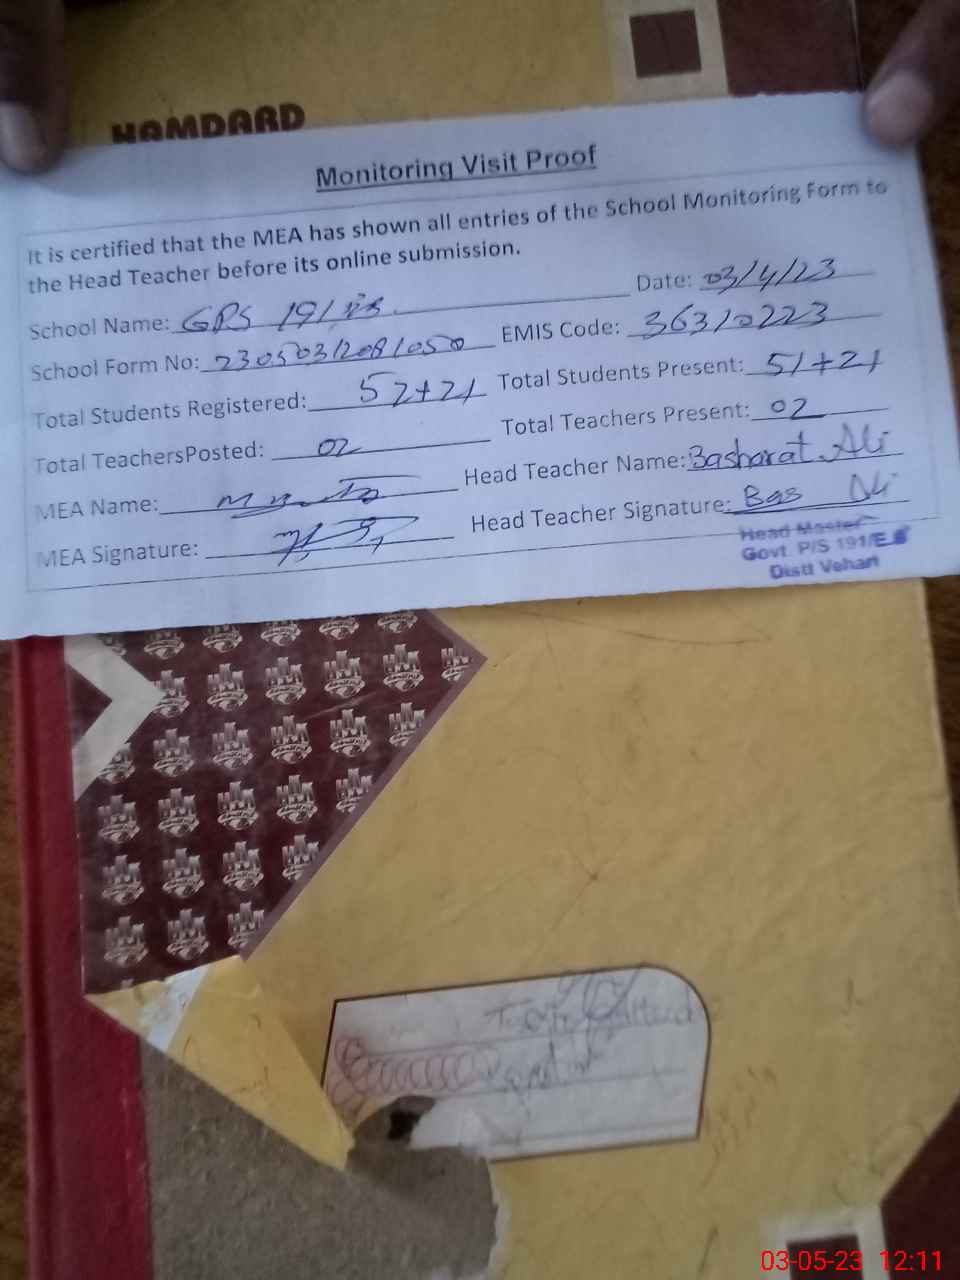 HAMDARD
Monitoring Visit Proof
It is certified that the MEA has shown all entries of the School Monitoring Form to
the Head Teacher before its online submission.
School Name: GPS 191/ Date: 03/4/23
School Form No: EMIS Code: 36310223
Total Students Registered: 52+21 Total Students Present: 51+21
Total TeachersPosted: 02 Total Teachers Present: 02
MEA Name: Head Teacher Name: Basharat Ali
MEA Signature: Head Teacher Signature: Bas Ali
Head Master
Govt. P/S 191/E.B
Distt Vehari
03-05-23 12:11